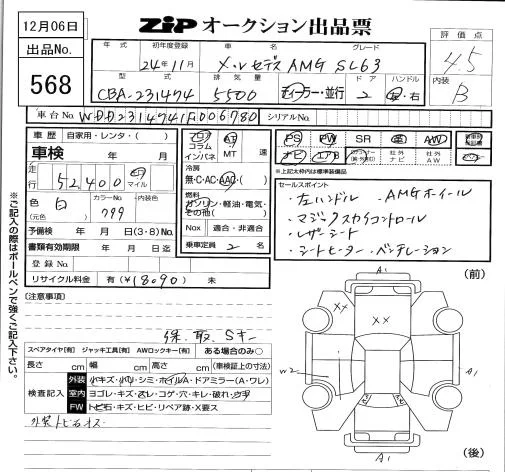 12月06日
ZIP オークション出品票
出品No.
568
評価点
4.5
内装
B
年式 初年度登録 車名 グレード
24年11月 メルセデスAMG SL63
型式 排気量 ドア ハンドル
CBA-231474 5500 ディーラー・並行 2 左・右
車台No. WDD2314741F006780 シリアルNo.
車歴 自家用・レンタ・( )
車検 年 月
走行 52,400 km マイル
色 白 カラーNo. 内装色
(元色) 799
予備検 年 月 日(3・8)No.
書類有効期限 年 月 日迄
登録No.
リサイクル料金 有(¥18090)無
フロア コラム インパネ
AT MT 速
冷房
無・C・AC・AAC・( )
燃料
ガソリン・軽油・電気・その他( )
Nox 適合・非適合
乗車定員 2 名
PS PW SR 革 AW
ナビ エアB 社外ナビ 社外AW
*上記太枠内は標準装備
セールスポイント
・左ハンドル ・AMGホイール
・マジックスカイコントロール
・レザーシート
・シートヒーター・ベンチレーション
[注意事項]
保、取、Sキー
スペアタイヤ[有] ジャッキ工具[有] AWロックキー[有] ある場合のみ○
長さ cm 幅 cm 高さ cm (車検証上の寸法)
検査記入
外装 小キズ・小凹・シミ・ホイルA・ドアミラー(A・ワレ)
室内 ヨゴレ・キズ・スレ・コゲ・穴・キレ・破れ・ウチ
FW トビ石・キズ・ヒビ・リペア跡・X要ス
外装トビ石オス
(前)
A1
XX
XX
W2
A1
A1
(後)
※ご記入の際はボールペンで強くご記入下さい。